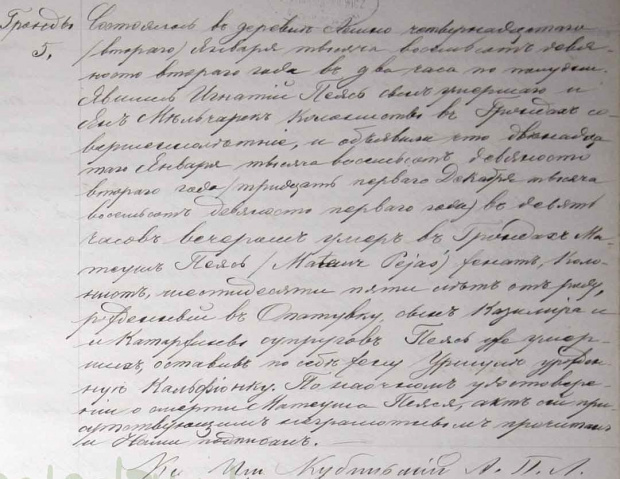 Гронды
5.
Состоялось въ деревнѣ четвернадцатаго
/втораго/ Января тысяча восемьсотъ девя-
носто втораго года въ два часа по полудни.
Явились Игнатій Пеясь сынъ умершаго и
Янъ колонисты въ Грондахъ со-
вершеннолѣтніе, и объявили что двѣнадца-
таго Января тысяча восемьсотъ девяносто
втораго года /тридцать перваго Декабря тысяча
восемьсотъ девяносто перваго года/ въ девять
часовъ вечеромъ умеръ въ Грондахъ Ма-
теушъ Пеясь /Mateusz Pejaś/ женатъ, коло-
нистъ, шестидесяти пяти лѣтъ отъ роду,
рожденный въ сынъ Казиміра и
и Катаржины супруговъ Пеясь уже умер-
шихъ, оставивъ по себѣ жену урожден-
ную По наочномъ удостовѣре-
ніи о смерти Матеуша Пеяся, актъ сей при-
сутствующимъ неграмотнымъ прочитанъ
и Нами подписанъ. —
А. П. Л.